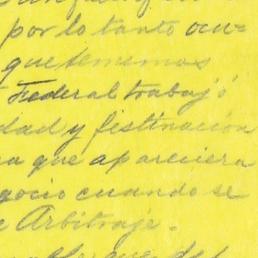 por lo tanto ocu-
que tememos
Federal trabajó
dad y festinación
a que apareciera
gocio cuando se
e Arbitraje.